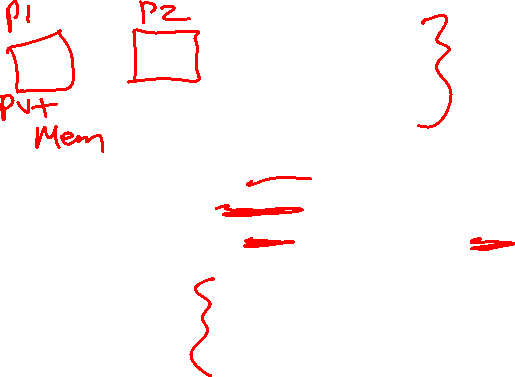 P1 P2
Pvt
Mem